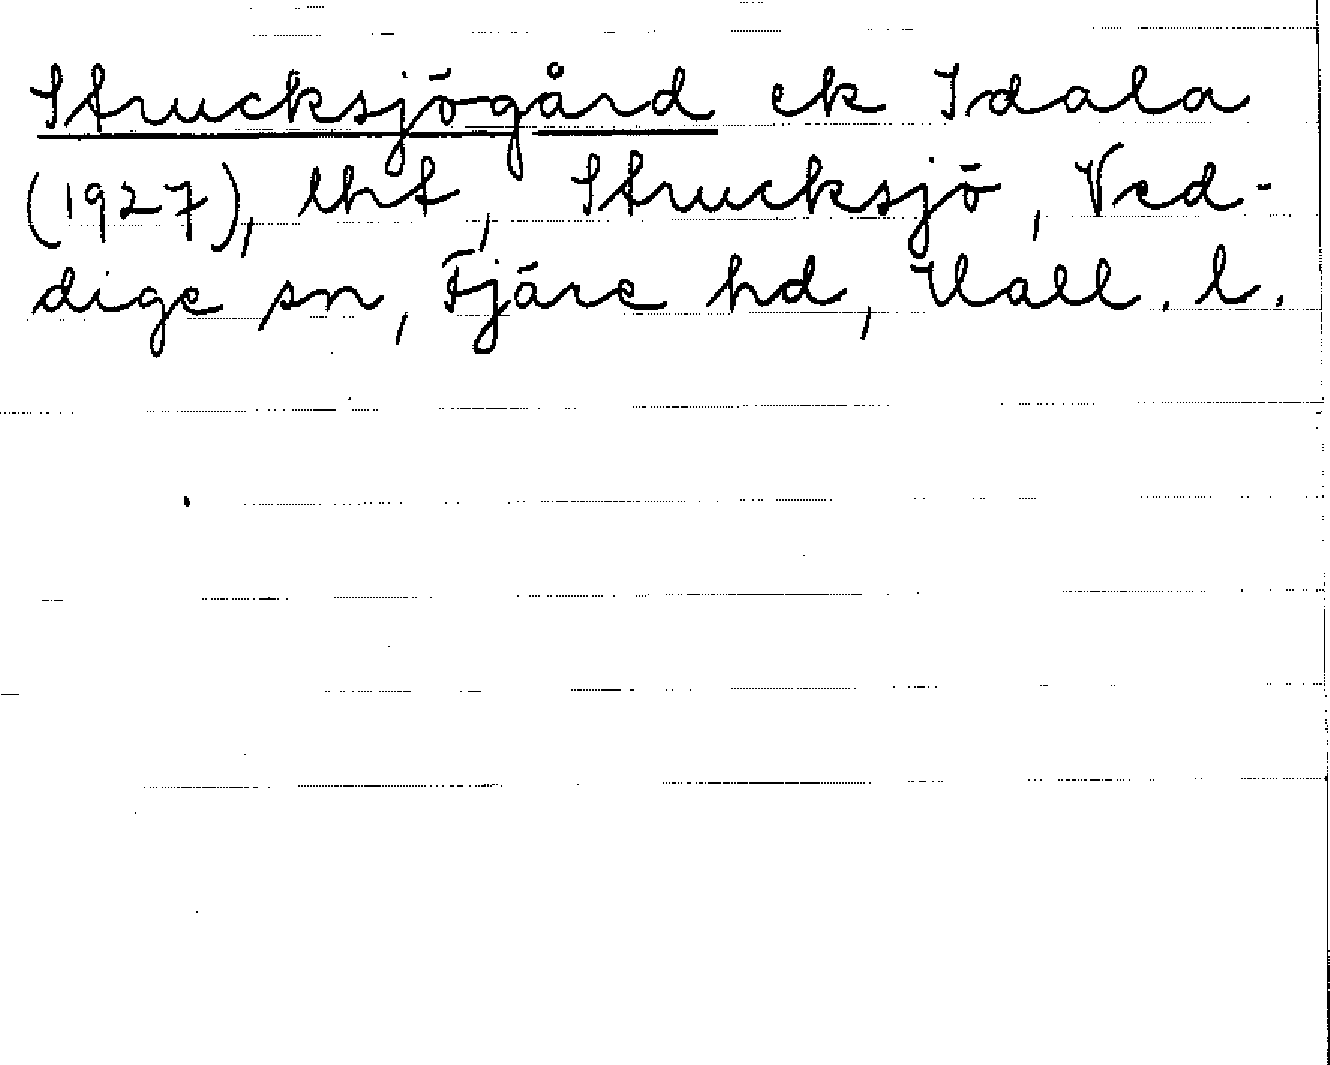 Strucksjögård ek Idala
(1927), lht, Strucksjö, Ved-
dige sn, Fjäre hd, Hall. l.